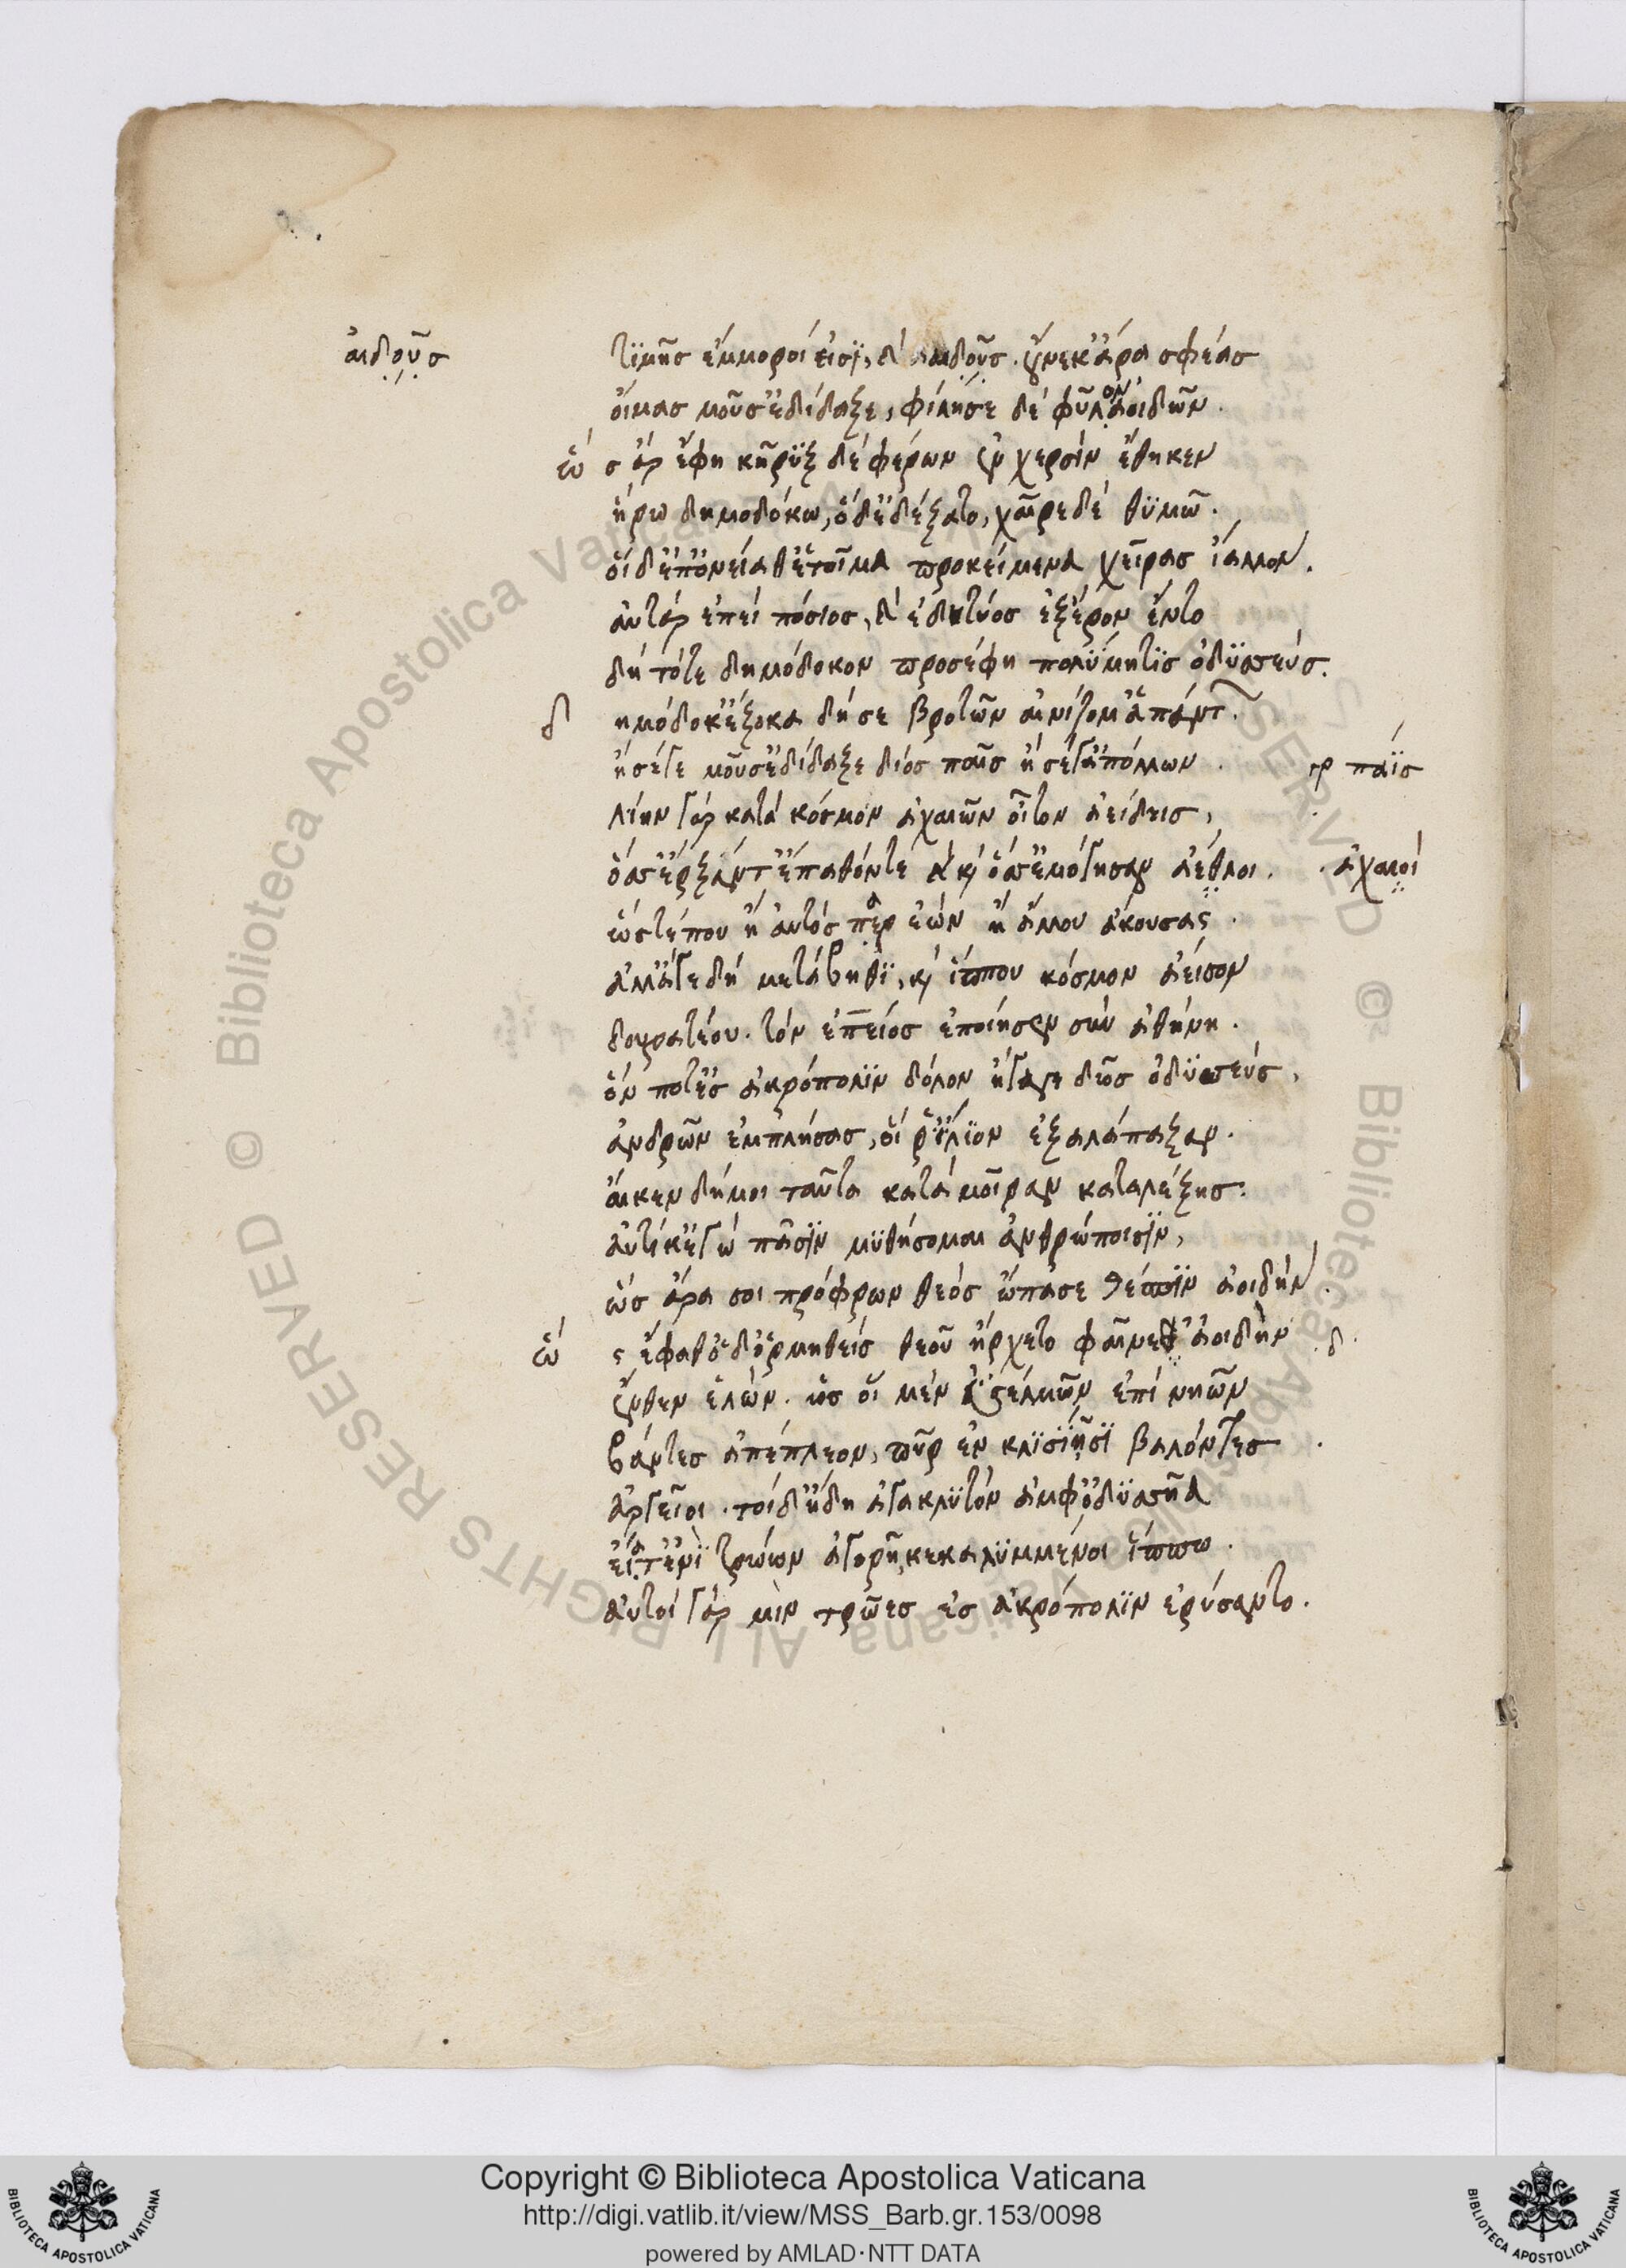 αἰδοῦς
τϊμῆς ἔμμοροί εἰσϊ, καὶ αἰδοῦς. οὕνεκ' ἄρα σφέας
οἴμας μοῦσ' ἐδίδαξε, φίλησε δὲ φῦλον ἀοιδῶν.
ὣς ἄρ ἔφη κῆρϋξ δὲ φέρων ἐν χερσὶν ἔθηκεν
ἥρω δημοδόκω, ὁ δ' ἐδέξατο, χαῖρε δὲ θϋμῶ.
οἱ δ' ἐπ' ὀνείαθ' ἑτοῖμα προκείμενα χεῖρας ἴαλλον.
αὐτὰρ ἐπεὶ πόσιος, καὶ ἐδητύος ἐξ ἔρον ἕντο
δὴ τότε δημόδοκον προσέφη πολΰμητϊς ὀδϋσσεύς.
δημόδοκ' ἔξοχα δή σε βροτῶν αἰνίζομ' ἁπάντ.
ἢ σέγε μοῦσ' ἐδίδαξε διὸς παῖς ἢ σέγ' ἀπόλλων.
γρ παϊς
λίην γὰρ κατὰ κόσμον ἀχαιῶν οἶτον ἀείδεις,
ὅσσ' ἔρξαντ' ἔπαθόν τε καὶ ὅσσ' ἐμόγησαν ἀέθλοι.
ἀχαιοί
ὥστέ που ἢ αὐτὸς παρ ἐὼν ἢ ἄλλου ἀκούσας.
ἀλλ' ἄγε δὴ μετάβηθϊ, καὶ ἵππου κόσμον ἄεισον
δουρατέου. τὸν ἐπειὸς ἐποίησεν σὺν ἀθήνη.
ὅν ποτ' ἐς ἀκρόπολϊν δόλον ἤγαγε δῖος ὀδϋσσεύς,
ἀνδρῶν ἐμπλήσας, οἵ ῥ' ἴλϊον ἐξαλάπαξαν.
αἴ κεν δή μοι ταῦτα κατὰ μοῖραν καταλέξης.
αὐτίκ' ἐγὼ πᾶσϊν μϋθήσομαι ἀνθρώποισϊν,
ὡς ἄρα σοι πρόφρων θεὸς ὤπασε θέσπϊν ἀοιδήν.
ὣς ἔφαθ' ὁ δ' ὁρμηθεὶς θεοῦ ἤρχετο φαῖνεθ' ἀοιδὴν
δ.
ἔνθεν ἑλών. ὡς οἱ μὲν ἐϋσέλμων ἐπὶ νηῶν
βάντες ἀπέπλεον, πῦρ ἐν κλϊσίῃσϊ βαλόντες.
ἀργεῖοι. τοὶ δ' ἤδη ἀγακλϋτὸν ἀμφ' ὀδϋσσῆα
εἵατ' ἐνὶ τρώων ἀγορῆ, κεκαλϋμμένοι ἵππω.
αὐτοὶ γάρ μιν τρῶες ἐς ἀκρόπολϊν ἐρύσαντο.
Copyright © Biblioteca Apostolica Vaticana
http://digi.vatlib.it/view/MSS_Barb.gr.153/0098
powered by AMLAD·NTT DATA